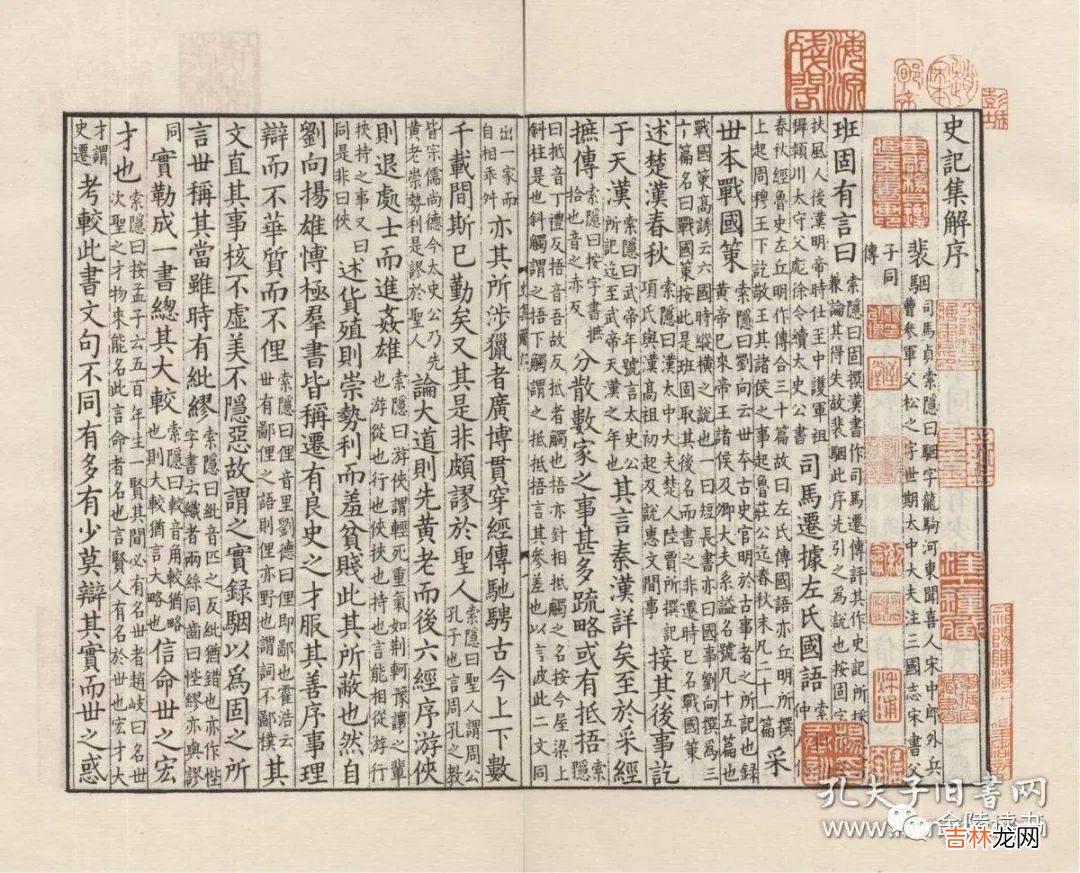 史記集解序
裴駰
司馬貞索隱曰駰字龍駒河東聞喜人宋中郎外兵
曹參軍父松之字世期太中大夫注三國志宋書父
子同
傳
班固有言曰
索隱曰固撰漢書作司馬遷傳評其作史記所採
兼論其得失故裴駰此序先引之為說也按固字
扶風人後漢明帝時仕至中護軍祖
穉潁川太守父彪徐令續太史公書
司馬遷據左氏國語
春秋經魯史左丘明作傳合三十篇故曰左氏傳國語亦丘明所撰
上起周穆王下訖敬王其諸侯之事起魯莊公迄春秋末凡二十一篇
采
世本戰國策
索隱曰劉向云世本古史官明於古事者之所記也錄
黃帝已來帝王諸侯及卿大夫系謚名號凡十五篇也
戰國策高誘云六國時縱橫之說也一曰短長書亦曰國事劉向撰為三
十篇名曰戰國策按此是班固取其後名而書之非遷時已名戰國策
述楚漢春秋
索隱曰漢太中大夫楚人陸賈所撰記
項氏與漢高祖初起及說惠文間事
接其後事訖
于天漢
索隱曰武帝年號言太史公
所記迄至武帝天漢之年也
其言秦漢詳矣至於采經
摭傳
索隱曰按字書摭
拾也音之赤反
分散數家之事甚多疏略或有抵捂
索
隱
曰抵音丁禮反捂音吾故反抵者觸也捂亦斜相抵觸之名按今屋梁上
斜柱是也斜觸謂之捂下觸謂之抵抵捂言其參差也以言彼此二文同
出一家而
自相乖舛
亦其所涉獵者廣博貫穿經傳馳騁古今上下數
千載間斯已勤矣又其是非頗謬於聖人
索隱曰聖人謂周公
孔子也言周孔之教
皆宗儒尚德今太史公乃先
黃老崇勢利是謬於聖人
論大道則先黃老而後六經序游俠
則退處士而進姦雄
索隱曰游俠謂輕死重氣如荆軻豫讓之輩
也游從也行也俠挾也持也言能相從游行
挾持之事又曰
同是非曰俠
述貨殖則崇勢利而羞貧賤此其所蔽也然自
劉向揚雄博極羣書皆稱遷有良史之才服其善序事理
辯而不華質而不俚
索隱曰俚音里劉德曰俚即鄙也霍浩云
世有鄙俚之語則俚亦野也謂詞不鄙樸
其
文直其事核不虛美不隱惡故謂之實錄駰以為固之所
言世稱其當雖時有紕繆
索隱曰紕音匹之反紕猶錯也亦作悂
字書云織者兩絲同齒曰悂繆亦與謬
同
實勒成一書總其大較
索隱曰較音角較猶略
也則大較猶言大略也
信命世之宏
才也
次聖之才物來能名此言命者名也言賢人有名於世也宏才大
才謂
史遷
考較此書文句不同有多有少莫辯其實而世之惑
海源
殘閣
孔夫子旧书网
金陵读书
吉林龙网